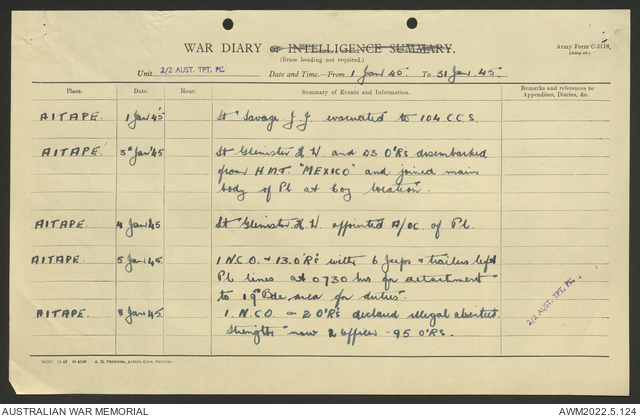 WAR DIARY or INTELLIGENCE SUMMARY.
Army Form C.2118.
(Erase heading not required.)
Unit 2/2 AUST. TPT. PL. Date and Time.—From 1 Jan 45. To 31 Jan 45.
Place. Date. Hour. Summary of Events and Information. Remarks and references to
Appendices, Diaries, &c.
AITAPE. 1 Jan 45 Lt Savage J.J evacuated to 104 C.C.S.
AITAPE. 3 Jan 45 Lt Glenister H. W. and 23 O'Rs disembarked
from H.M.T. "MEXICO" and joined main
body of Pl at Coy location.
AITAPE. 4 Jan 45 Lt Glenister H. W. appointed A/OC. of Pl.
AITAPE. 5 Jan 45. 1 N.C.O. + 13. O'Rs with 6 jeeps + trailers left
Pl lines at 0730 hrs for detachment
to 19 Bde area for duties.
AITAPE. 8 Jan 45. 1. N.CO. 2 O'Rs declared illegal absentees.
Strength now 2 officers - 95 O'Rs.
2/2 AUST. TPT. PL.
AUSTRALIAN WAR MEMORIAL
AWM2022.5.124